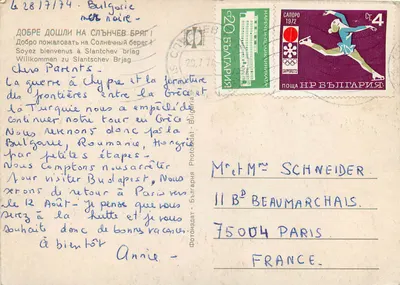 Le 28/7/74 Bulgarie
mer noire -
ДОБРЕ ДОШЛИ НА СЛЪНЧЕВ БРЯГ!
Добро пожаловать на Солнечный берег!
Soyez bienvenus à Slantchev Brjag
Willkommen zu Slantchev Brjag
Chers Parents
La guerre à Chypre et la fermeture
des frontières entre la Grèce et
la Turquie nous a empêché de
continuer notre tour en Grèce
Nous revenons donc par la
Bulgarie, Roumanie, Hongrie
par petites étapes-
Nous comptons nous arrêter
pour visiter Budapest, Nous
serons de retour à Paris vers
le 12 Août- Je pense que vous
serez à la hutte et je vous
souhaite donc de bonnes vacances.
à bientôt
Annie-
Фотоиздат · България
20 ст. БЪЛГАРИЯ
САПОРО
1972
SAPPORO'72
ст 4
ПОЩА Н Р БЪЛГАРИЯ
Mr et Mme SCHNEIDER
11 Bd BEAUMARCHAIS.
75004 PARIS
FRANCE.